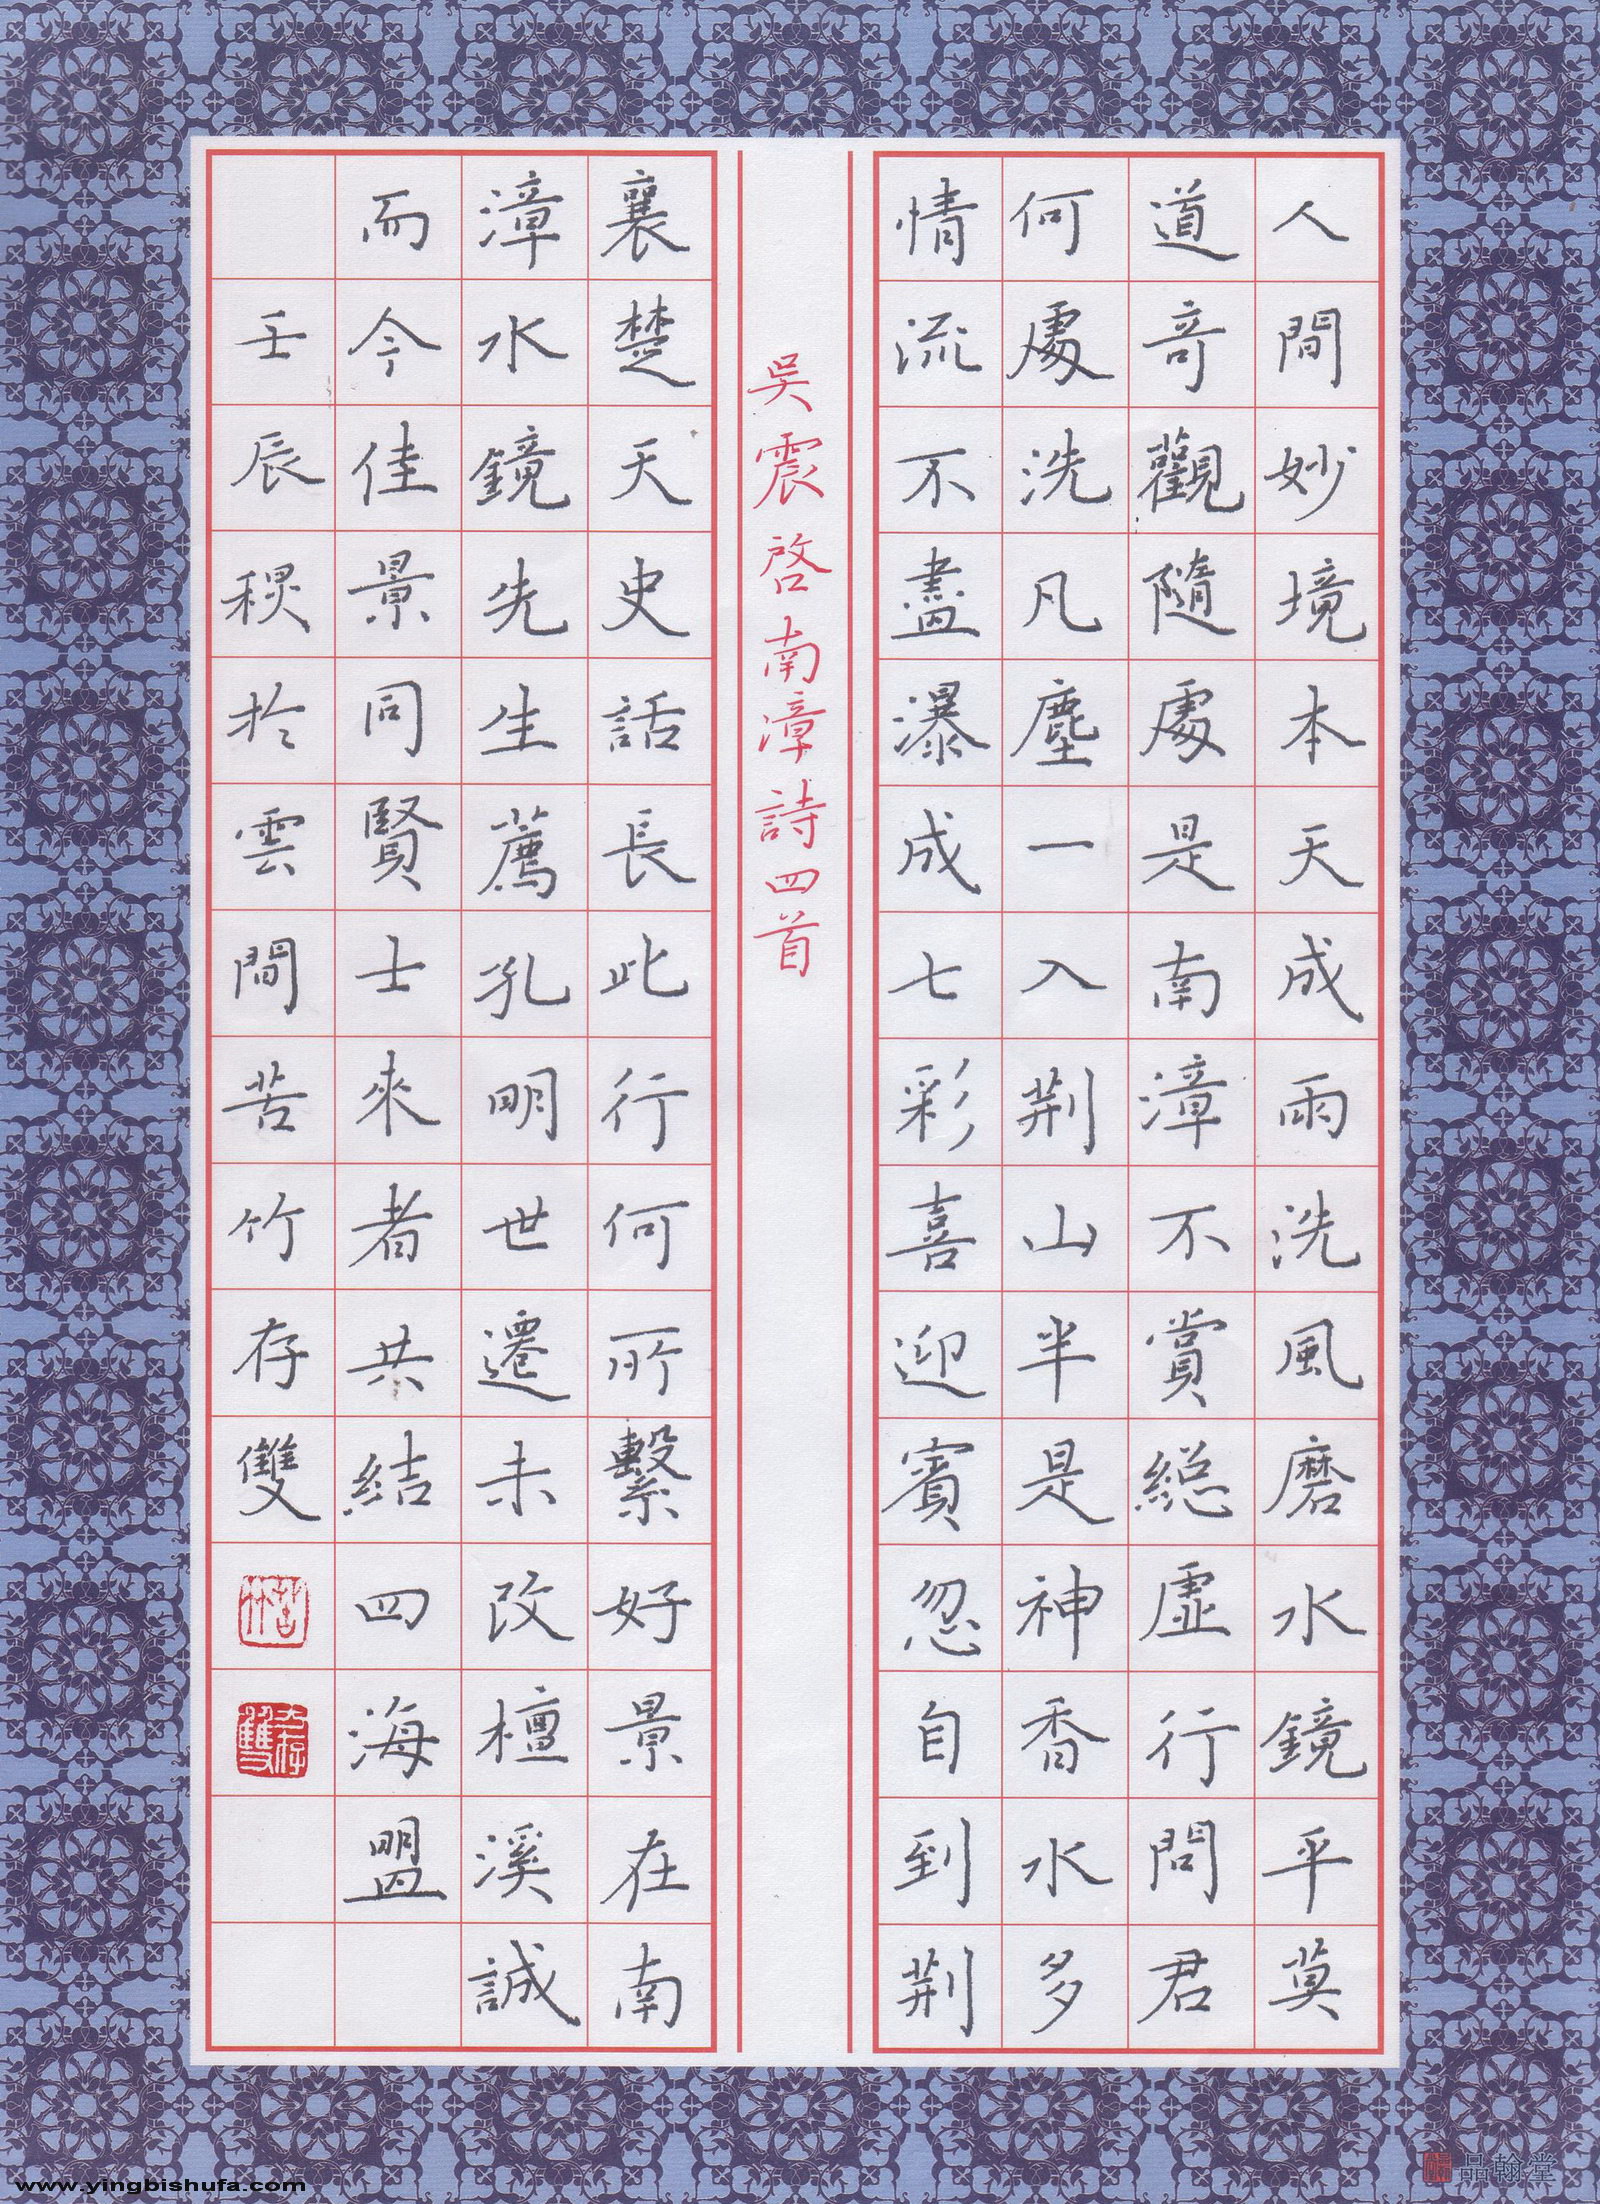 人間妙境本天成雨洗風磨水鏡平莫
道奇觀隨處是南漳不賞総虛行問君
何處洗凡塵一入荆山半是神香水多
情流不盡瀑成七彩喜迎賓忽自到荆
吳震啓南漳詩四首
襄楚天史話長此行何所繫好景在南
漳水鏡先生薦孔明世遷未改檀溪誠
而今佳景同賢士來者共結四海盟
壬辰秋於雲間苦竹存雙
品翰堂
www.yingbishufa.com